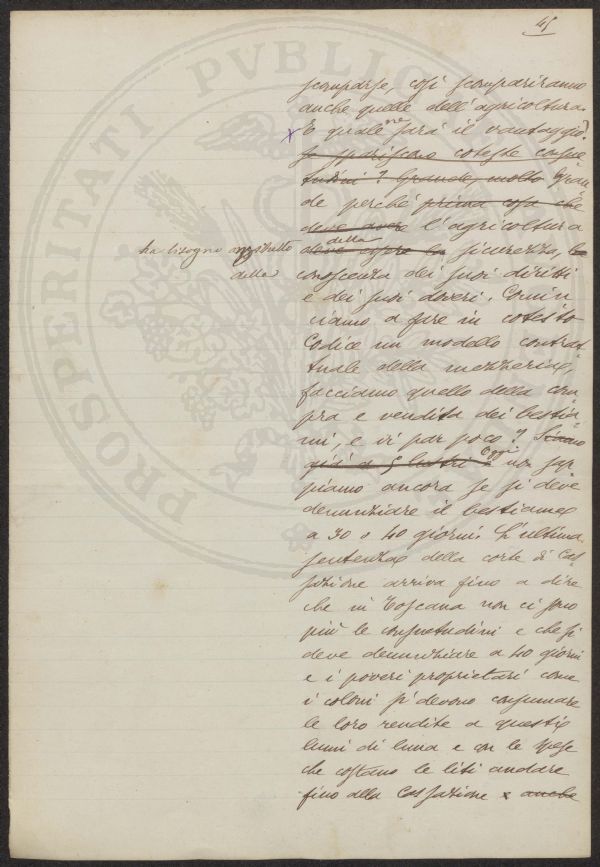 45
scomparse, così scompariranno
anche quelle dell'agricoltura.
E quale ne sarà il vantaggio?
se spariscono coteste consue
tudini? Grande, molto gran
de perché prima cosa che
deve avere l'agricoltura
ha bisogno della
deve avere la della sicurezza, la
conoscenza dei suoi diritti
e dei suoi doveri. Comin
ciamo a fare in cotesto
Codice un modello contrat
tuale della mezzeria,
facciamo quello della com
pra e vendita dei bestia
mi, e vi par poco? Siamo
già a 5 lustri e Oggi non sap
piamo ancora se si deve
denunziare il bestiame
a 30 o 40 giorni. L'ultima
sentenza della corte di Cas
sazione arriva fino a dire
che in Toscana non ci sono
più le consuetudini e che si
deve denunziare a 40 giorni
e i poveri proprietari come
i coloni si devono consumare
le loro rendite a questi
lumi di luna e con le spese
che costano le liti andare
fino alla Cassazione e anche
PROSPERITATI PVBLICAE